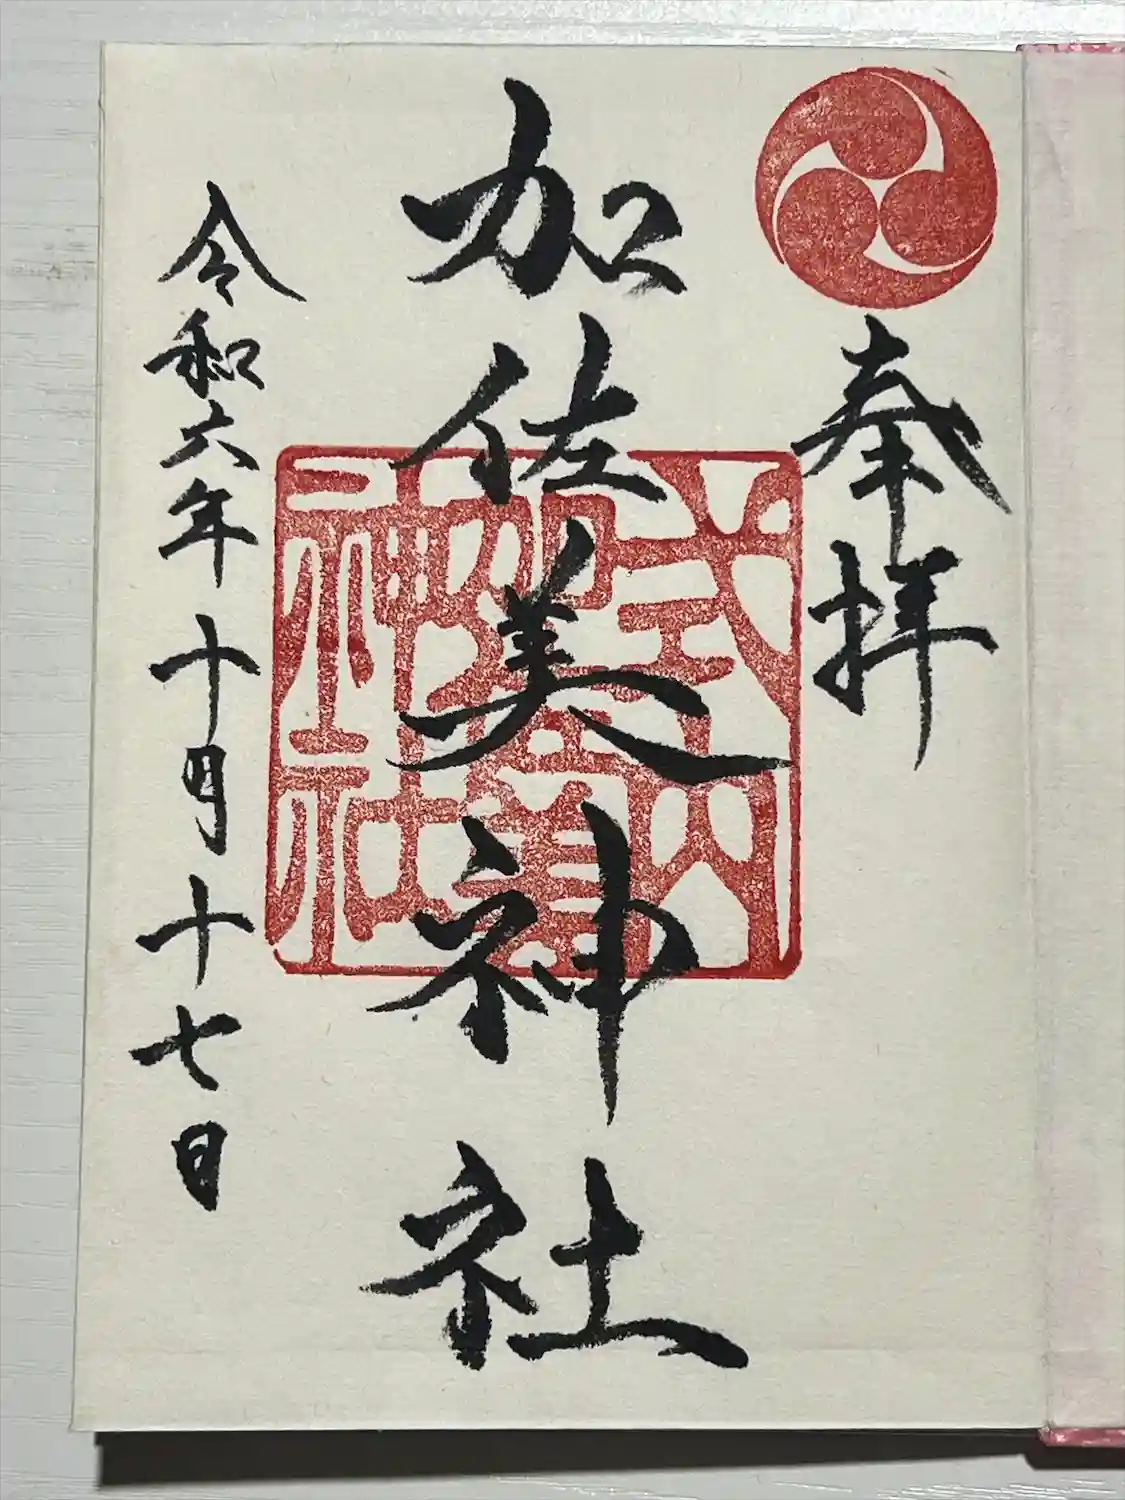 奉拝
加佐美神社
式内
加佐美
神社
令和六年十月十七日